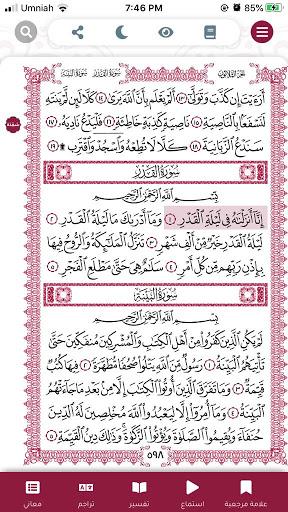 Umniah 7:46 PM 85%
الجزء الثلاثون سورة القدر سورة البينة
أَرَءَيْتَ إِن كَذَّبَ وَتَوَلَّىٰٓ ١٣ أَلَمْ يَعْلَم بِأَنَّ ٱللَّهَ يَرَىٰ ١٤ كَلَّا لَئِن لَّمْ يَنتَهِ
لَنَسْفَعًۢا بِٱلنَّاصِيَةِ ١٥ نَاصِيَةٍ كَٰذِبَةٍ خَاطِئَةٍ ١٦ فَلْيَدْعُ نَادِيَهُۥ ١٧
سَنَدْعُ ٱلزَّبَانِيَةَ ١٨ كَلَّا لَا تُطِعْهُ وَٱسْجُدْ وَٱقْتَرِب ۩ ١٩
سُورَةُ القَدْرِ
بِسْمِ ٱللَّهِ ٱلرَّحْمَٰنِ ٱلرَّحِيمِ
إِنَّآ أَنزَلْنَٰهُ فِى لَيْلَةِ ٱلْقَدْرِ ١ وَمَآ أَدْرَىٰكَ مَا لَيْلَةُ ٱلْقَدْرِ ٢
لَيْلَةُ ٱلْقَدْرِ خَيْرٌ مِّنْ أَلْفِ شَهْرٍ ٣ تَنَزَّلُ ٱلْمَلَٰٓئِكَةُ وَٱلرُّوحُ فِيهَا
بِإِذْنِ رَبِّهِم مِّن كُلِّ أَمْرٍ ٤ سَلَٰمٌ هِىَ حَتَّىٰ مَطْلَعِ ٱلْفَجْرِ ٥
سُورَةُ البَيِّنَةِ
بِسْمِ ٱللَّهِ ٱلرَّحْمَٰنِ ٱلرَّحِيمِ
لَمْ يَكُنِ ٱلَّذِينَ كَفَرُوا۟ مِنْ أَهْلِ ٱلْكِتَٰبِ وَٱلْمُشْرِكِينَ مُنفَكِّينَ حَتَّىٰ
تَأْتِيَهُمُ ٱلْبَيِّنَةُ ١ رَسُولٌ مِّنَ ٱللَّهِ يَتْلُوا۟ صُحُفًا مُّطَهَّرَةً ٢ فِيهَا كُتُبٌ
قَيِّمَةٌ ٣ وَمَا تَفَرَّقَ ٱلَّذِينَ أُوتُوا۟ ٱلْكِتَٰبَ إِلَّا مِنۢ بَعْدِ مَا جَآءَتْهُمُ
ٱلْبَيِّنَةُ ٤ وَمَآ أُمِرُوٓا۟ إِلَّا لِيَعْبُدُوا۟ ٱللَّهَ مُخْلِصِينَ لَهُ ٱلدِّينَ
حُنَفَآءَ وَيُقِيمُوا۟ ٱلصَّلَوٰةَ وَيُؤْتُوا۟ ٱلزَّكَوٰةَ ۚ وَذَٰلِكَ دِينُ ٱلْقَيِّمَةِ ٥
٥٩٨
علامة مرجعية استماع تفسير تراجم معاني